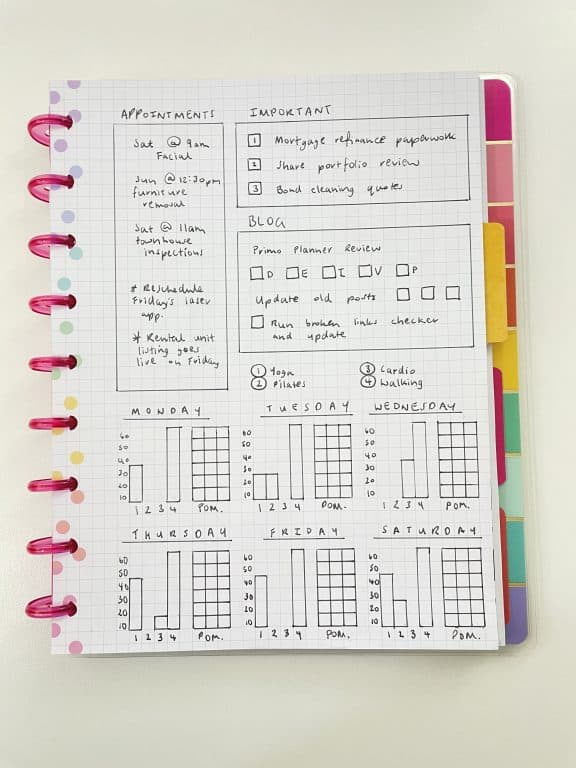 APPOINTMENTS
Sat @ 9am
Facial
Sun @ 12:30pm
furniture
removal
Sat @ 11am
townhouse
inspections
* Reschedule
Friday's laser
app.
* Rental unit
listing goes
live on Friday
IMPORTANT
1 Mortgage refinance paperwork
2 Share portfolio review
3 Bond cleaning quotes
BLOG
Primo Planner Review
D E I V P
Update old posts
Run broken links checker
and update
1 Yoga
2 Pilates
3 Cardio
4 Walking
MONDAY
60
50
40
30
20
10
1 2 3 4 POM.
TUESDAY
60
50
40
30
20
10
1 2 3 4 POM.
WEDNESDAY
60
50
40
30
20
10
1 2 3 4 POM.
THURSDAY
60
50
40
30
20
10
1 2 3 4 POM.
FRIDAY
60
50
40
30
20
10
1 2 3 4 POM.
SATURDAY
60
50
40
30
20
10
1 2 3 4 POM.